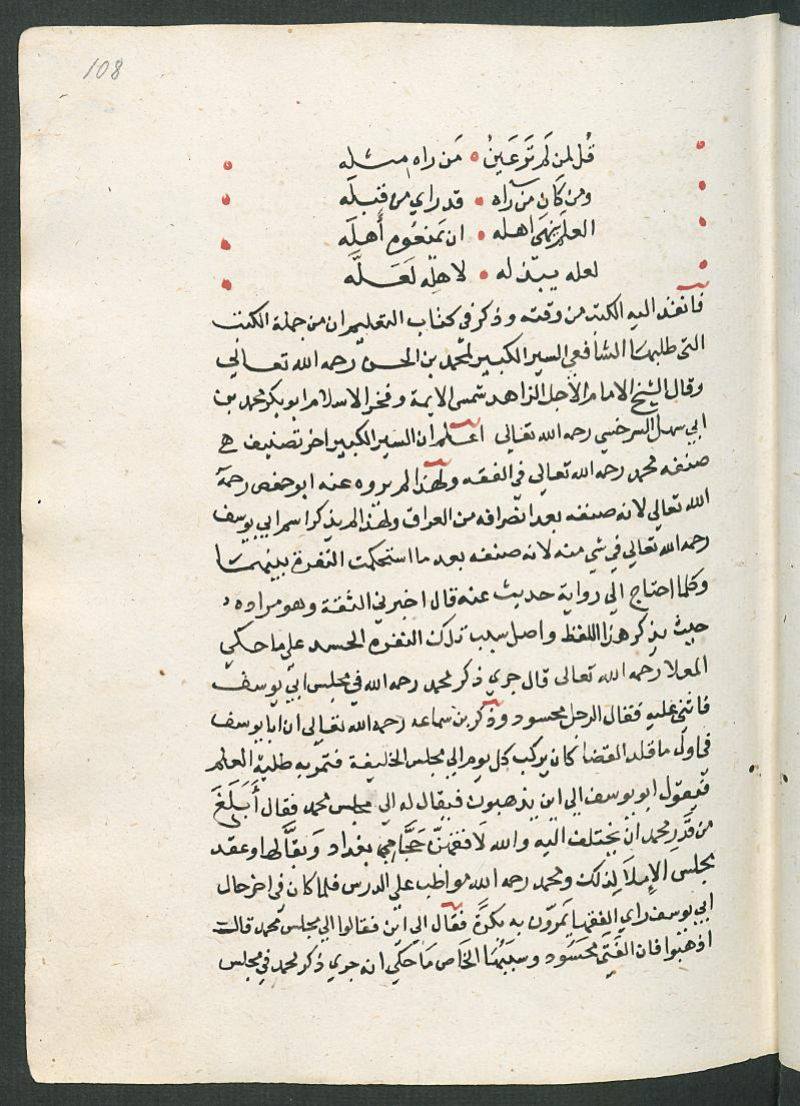 108
قُل لمن لم تَرَ عَينُ • مَن راه مثله
ومن كَان من رآه • قد راي من قبله
العلم ينهَى اهله • ان يَمنعُوه أهله
لعله يبذله • لاهله لعَلَّه
فانفذ اليه الكتب من وقته وذكر في كتاب التعليم ان من جملة الكتب
التي طلبها الشافعي السير الكبير لمحمد بن الحسن رحمه الله تعالي
وقال الشيخ الامام الأجل الزاهد شمس الايمة وفخر الاسلام ابو بكر محمد بن
ابي سهل السرخسي رحمه الله تعالي اعلم ان السير الكبير اخر تصنيف
صنفه محمد رحمه الله تعالي في الفقه ولهذا لم يروه عنه ابو حفص رحمه
الله تعالي لانه صنفه بعد انصرافه من العراق ولهذا لم يذكر اسم ابي يوسف
رحمه الله تعالي في شي منه لانه صنفه بعد ما استحكمت النفرة بينهما
وكلما احتاج الي رواية حديث عنه قال اخبرني الثقة وهو مراده
حيث يذكر هذا اللفظ واصل سبب تلك النفره الحسد علي ما حكي
المعلا رحمه الله تعالى قال جري ذكر محمد رحمه الله في مجلس ابي يوسف
فاثني عليه فقال الرجل محسود وذكر بن سماعه رحمه الله تعالي ان ابا يوسف
في اول ما قلد القضا كان يركب كل يوم الي مجلس الخليفة فتمر به طلبة العلم
فيقول ابو يوسف الي اين يذهبون فيقال له الي مجلس محمد فقال أبَلَغَ
من قَدْر محمد ان يختلف اليه والله لافقهنّ حَجَّامِي بغداد وَبقَّاليها وعقد
مجلسَ الإملاَ لذلك ومحمد رحمه الله مواظب علي الدرس فلما كان في اخر حال
ابي يوسف راي الفقها يَمرّون به بكرةً فقال الي اين فقالوا الي مجلس محمد قال
اذهَبُوا فان الفَتَى محسُود وسبَبُها الخاص مَا حَكي انه جري ذكر محمد في مجلس